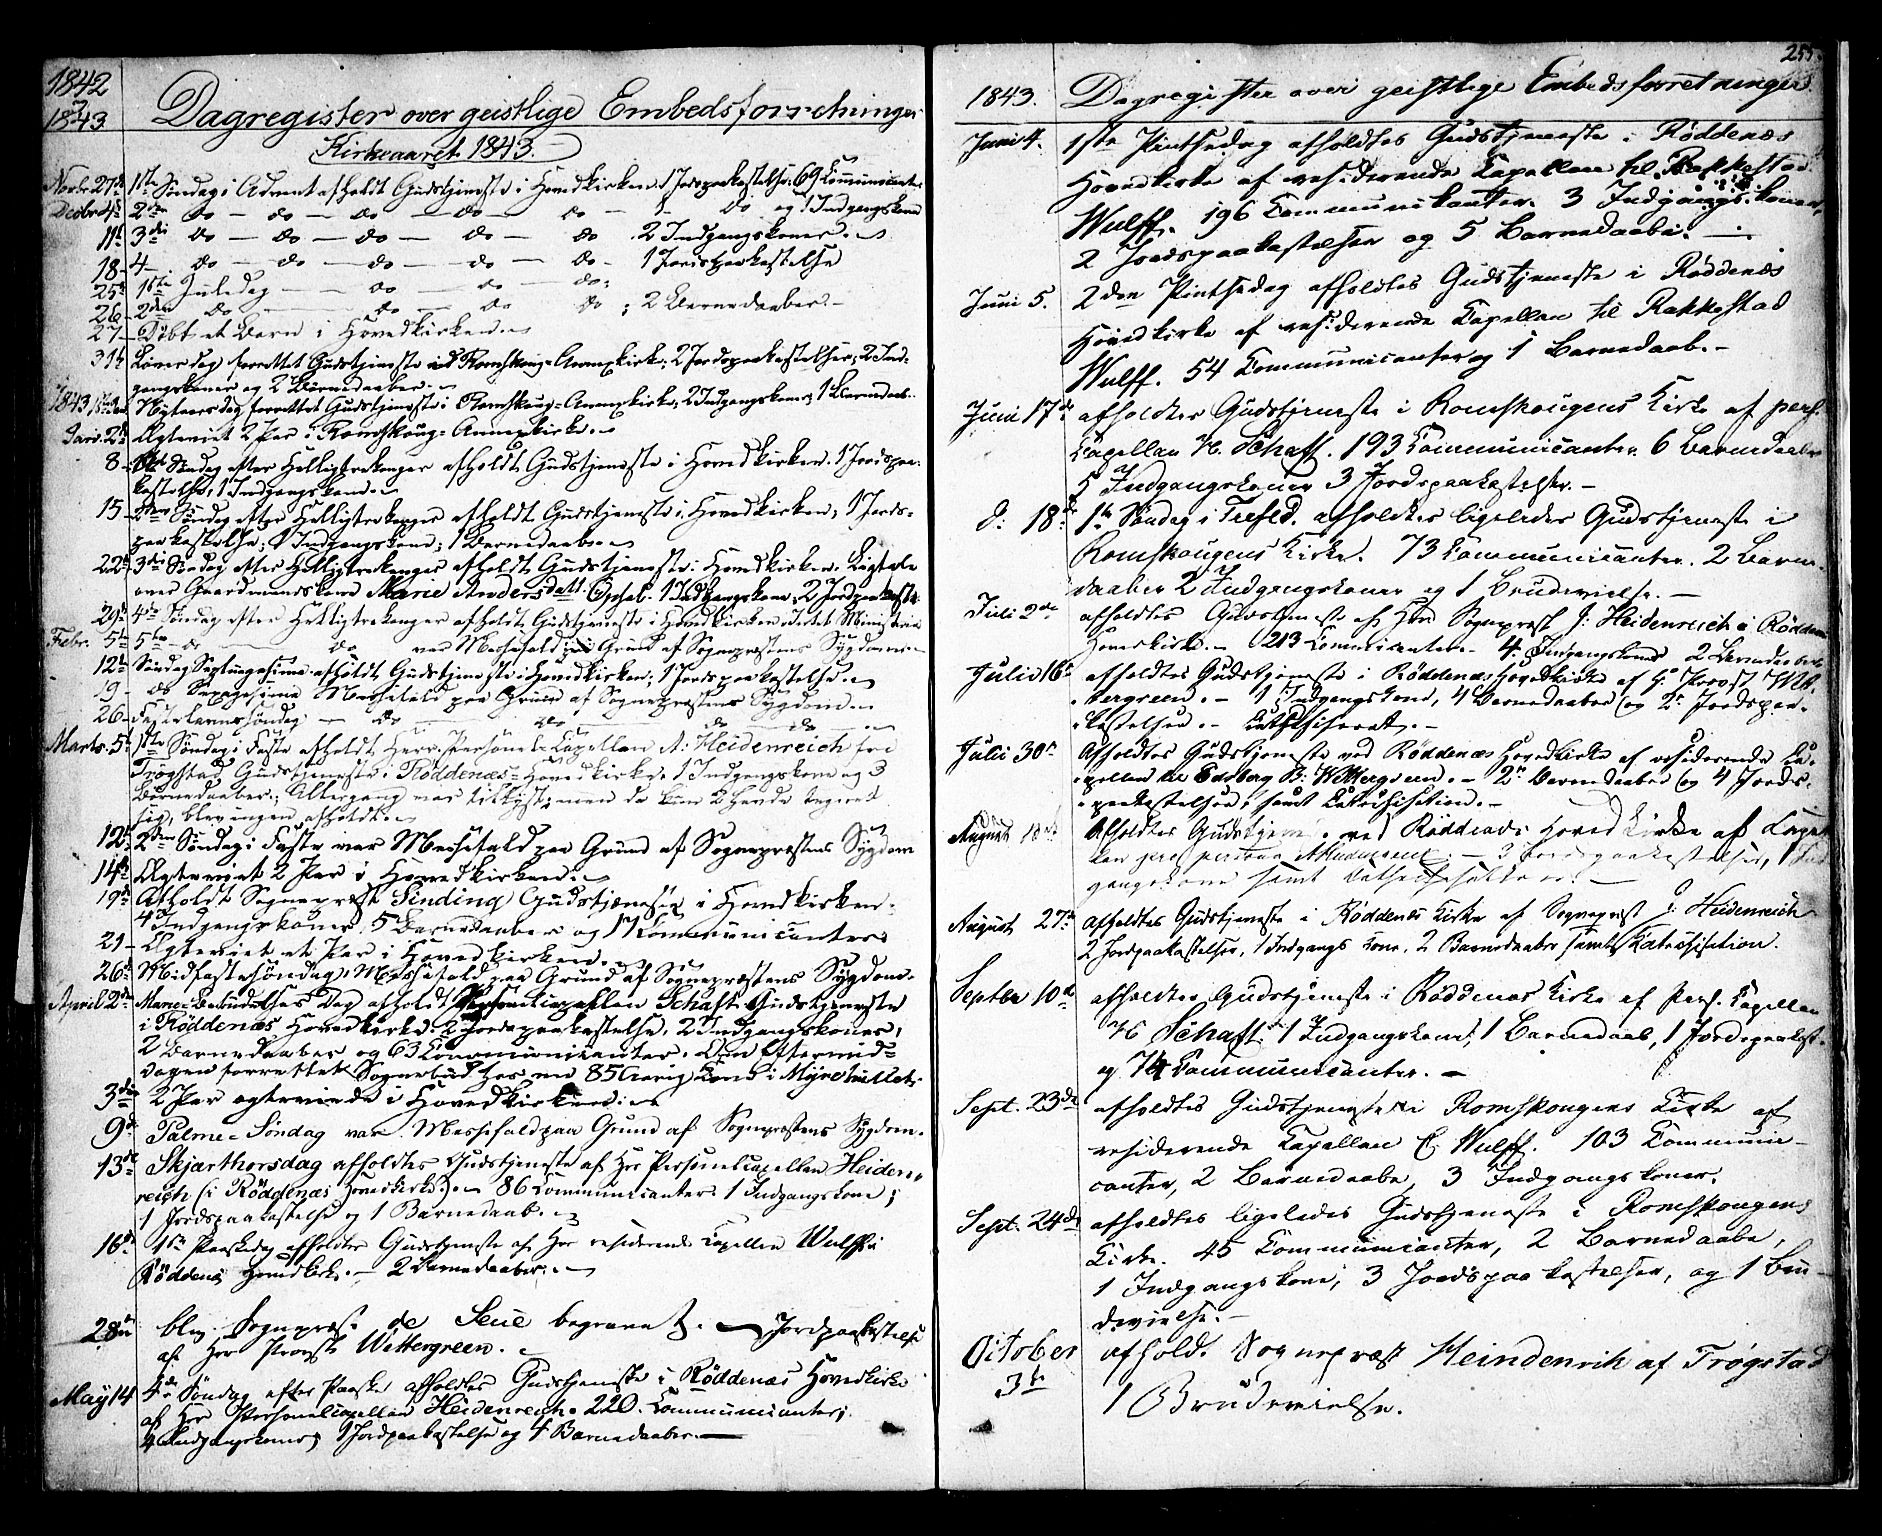 1842
1843. Dagregister over geistlige Embedsforretninger
Kirkeaaret 1843.
Novbr. 27de 1ste Søndag i Advent afholdt Gudstjeneste i Hovedkirken. 1 Jordspaakastelse. 69 Communicanter
Decbr. 4de 2den do — do — do — do — do — 1 — do og 1 Indgangskone
11te 3die do — do — do — do — do 2 Indgangskoner.
18 — 4 — do — do — do — do — do 1 Jordspaakastelse
25 1ste Juledag — do — do — do.
26 — 2den do do do do; 2 Barnedaaber. —
27 — Døbt et Barn i Hovedkirken.
31te Løverdag forrettet Gudstjeneste ved Romskoug-Annexkirke; 2 Jordspaakastelser; 2 Ind-
gangskoner og 2 Barnedaaber.
1843 Nytaarsdag forrettet Gudstjeneste i Romskoug-Annexkirke; 2 Indgangskoner; 1 Barnedaab.
Janv. 2de Ægteviet 2 Par i Romskoug-Annexkirke.
8 — 1ste Søndag efter Helligtrekonger afholdt Gudstjeneste i Hovedkirken. 1 Jordspaa-
kastelse; 1 Indgangskone.
15 — 2den Søndag efter Helligtrekonger afholdt Gudstjeneste i Hovedkirken; 1 Jords-
paakastelse; 1 Indgangskone; 1 Barnedaab.
22de 3die Søndag efter Helligtrekonger afholdt Gudstjeneste i Hovedkirken. Ligtale
over Gaardmandskone Marie Andersdatt. Opsal. 1 Indgangskone, 2 Jordpaakast.
29de 4de Søndag efter Helligtrekonger afholdt Gudstjeneste i Hovedkirken
Febr. 5te 5te — do — do var Messefald paa Grund af Sognepræstens Sygdom.
12te Søndag Septuagesima afholdt Gudstjeneste i Hovedkirken; 1 Jordspaakastelse.
19 — do Sexagesima Messefald paa Grund af Sognepræstens Sygdom.
26 — Fastelavnssøndag — do — do — do — do
Marts. 5te 1ste Søndag i Faste afholdt Herr Personel-Capellan A. Heidenreich fri
Trøgstad Gudstjeneste i Røddenæs-Hovedkirke. 1 Indgangskone og 3
Barnedaaber; Altergang var tillyst; men da kun 2 havde tegnet
sig, blev ingen afholdt.
12te 2den Søndag i Faste var Messefald paa Grund af Sognepræstens Sygdom
14de Ægteviet 2 Par i Hovedkirken.
19de Afholdt Sognepræst Sinding Gudstjeneste i Hovedkirken.
4 Indgangskoner, 5 Barnedaaber og 17 Communicanter
21 — Ægteviet et Par i Hovedkirken.
26de Midfastesøndag. Messefald paa Grund af Sognepræstens Sygdom.
April 2den Marie-Bebudelses Dag afholdt Personelcapellan Schaft Gudstjeneste
i Røddenæs Hovedkirke. 2 Jordspaakastelse. 2 Indgangskoner,
2 Barnedaaber og 63 Communicanter. Om Eftermid-
dagen forrettet Sognebud hos en 85 Aarig Kone i Myrehullet.
3die 2 Par ægteviede i Hovedkirken.
9de Palme-Søndag var Messefald paa Grund af Sognepræstens Sygdom.
13de Skjærthorsdag afholdtes Gudstjeneste af Hr Personelcapellan Heiden-
reich (i Røddenæs Hovedkirke). 86 Communicanter 1 Indgangskone;
1 Jordspaakastelse og 1 Barnedaab.
16de 1ste Paaskedag afholdtes Gudstjeneste af Hr residerende Capellan Wulff i
Røddenæs Hovedkirke. — 2 Barnedaaber.
28de blev Sognepræst de Seue begravet. — Jordpaakastelse
af Hr Provst Wettergreen.
May 14 4de Søndag efter Paaske afholdtes Gudstjeneste i Røddenæs Hovedkirke
af Hr Personelcapellan Heidenreich. 220 Communicanter;
4 Indgangskoner, 1 Jordpaakastelse og 4 Barnedaaber. —
255.
1843. Dagregister over geistlige Embedsforretninger
Juni 4. 1ste Pintsedag afholdtes Gudstjeneste i Røddenæs
Hovedkirke af residerende Capellan til Rakkestad
Wulff. 196 Communikanter. 3 Indgangskoner,
2 Jordspaakastelser og 5 Barnedaabe. —
Juni 5. 2den Pintsedag afholdtes Gudstjeneste i Røddenæs
Hovedkirke af residerende Capellan til Rakkestad
Wulff. 54 Communicanter og 1 Barnedaab. —
Juni 17de afholdtes Gudstjeneste i Romskougens Kirke af pers.
Capellan H. Schaft. 193 Communicanter. 6 Barnedaaber
5 Indgangskoner 3 Jordspaakastelser. —
d: 18de 1ste Søndag i Trefld. afholdtes ligeledes Gudstjeneste i
Romskougens Kirke. 73 Communicanter. 2 Barne-
daaber 2 Indgangskoner og 1 Brudevielse. —
Juli 2de afholdtes Gudstjeneste af Hr Sognepræst J: Heidenreich i Røddenæs
Hovedkirke. — 213 Communicanter — 4 Indgangskoner 2 Barnedaaber
Julie 16de afholdtes Gudstjeneste i Røddenæs Hovedkirke af Hr Provst Wet-
tergreen. — 1 Indgangskone, 4 Barnedaaber og 2 Jordspaa-
kastelser. — Catechiseret. —
Julii 30te Afholdtes Gudstjeneste ved Røddenæs Hovedkirke af residerende Ca-
pellan til Eidsberg B: Wettergreen. — 2 Barnedaaber og 4 Jords-
paakastelser, samt Catechisation. —
August Afholdtes Gudstjeneste ved Røddenæs Hovedkirke af Capel-
lan 3 Jordspaakastelser, 1 Ind-
gangskone samt
August 27de afholdtes Gudstjeneste i Røddenæs Kirke af Sognepræst J: Heidenreich
2 Jordpaakastelser, 1 Indgangs Kone, 2 Barnedaaber samt Katechisation.
Septbr 10de afholdtes Gudstjeneste i Røddenæs Kirke af Pers. Capellan
H. Schaft. 1 Indgangskone, 1 Barnedaab, 1 Jordspaakast.
og 74 Communicanter. —
Sept. 23de afholdtes Gudstjeneste i Romskougens Kirke af
residerende Capellan C. Wulff. 103 Communi-
canter, 2 Barnedaabe, 3 Indgangskoner.
Sept. 24de afholdtes ligeledes Gudstjeneste i Romskougens
Kirke. 45 Communicanter, 2 Barnedaabe,
1 Indgangskone, 3 Jordspaakastelser, og 1 Bru-
devielse. —
October 3de afhold. Sognepræst Heindenrik af Trøgstad
1 Brudevielse.